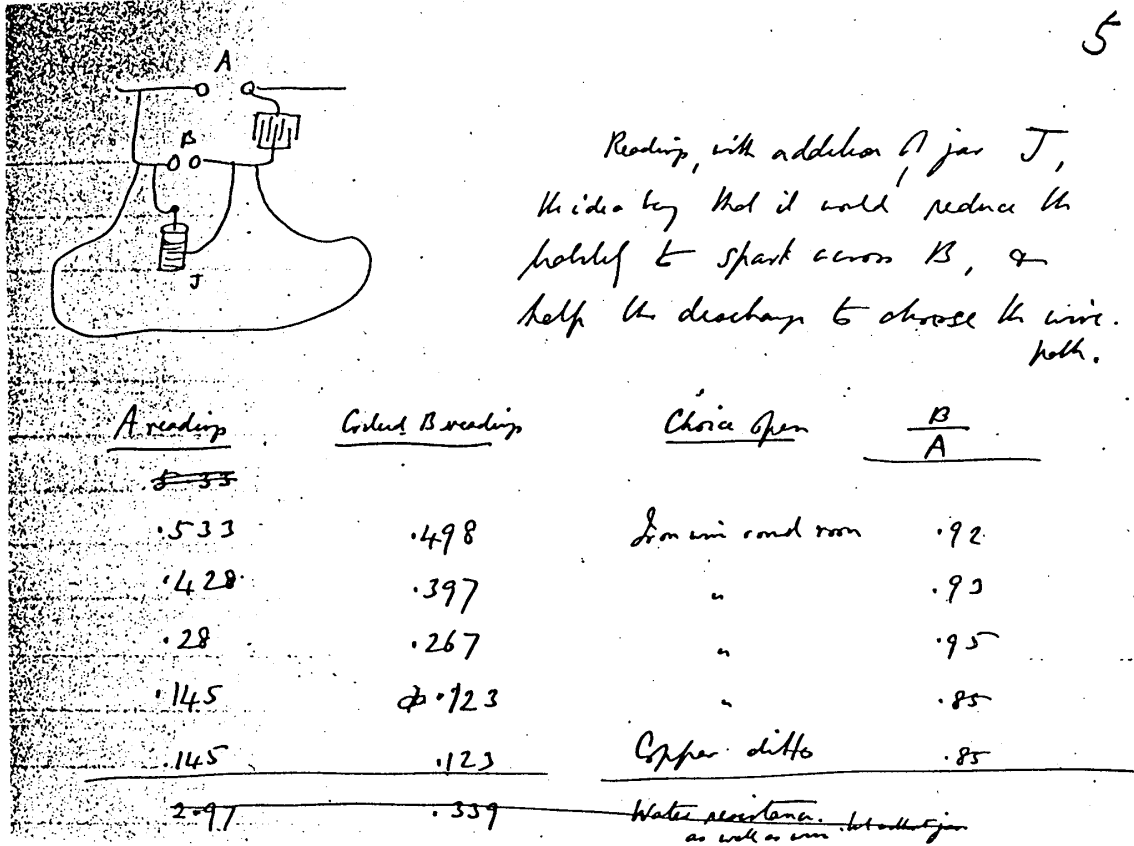 5
A
B
J
Readings, with addition of jar J,
the idea being that it would reduce the
to spark across B, &
help the discharge to choose the wire
path.
A readings Critical B readings Choice open B
A
.533
.533 .498 Iron wire round room .92
.428 .397 " .93
.28 .267 " .95
.145 .123 " .85
.145 .123 Copper ditto .85
2.97 .339 Water resistance.
as well as wire. but without jar